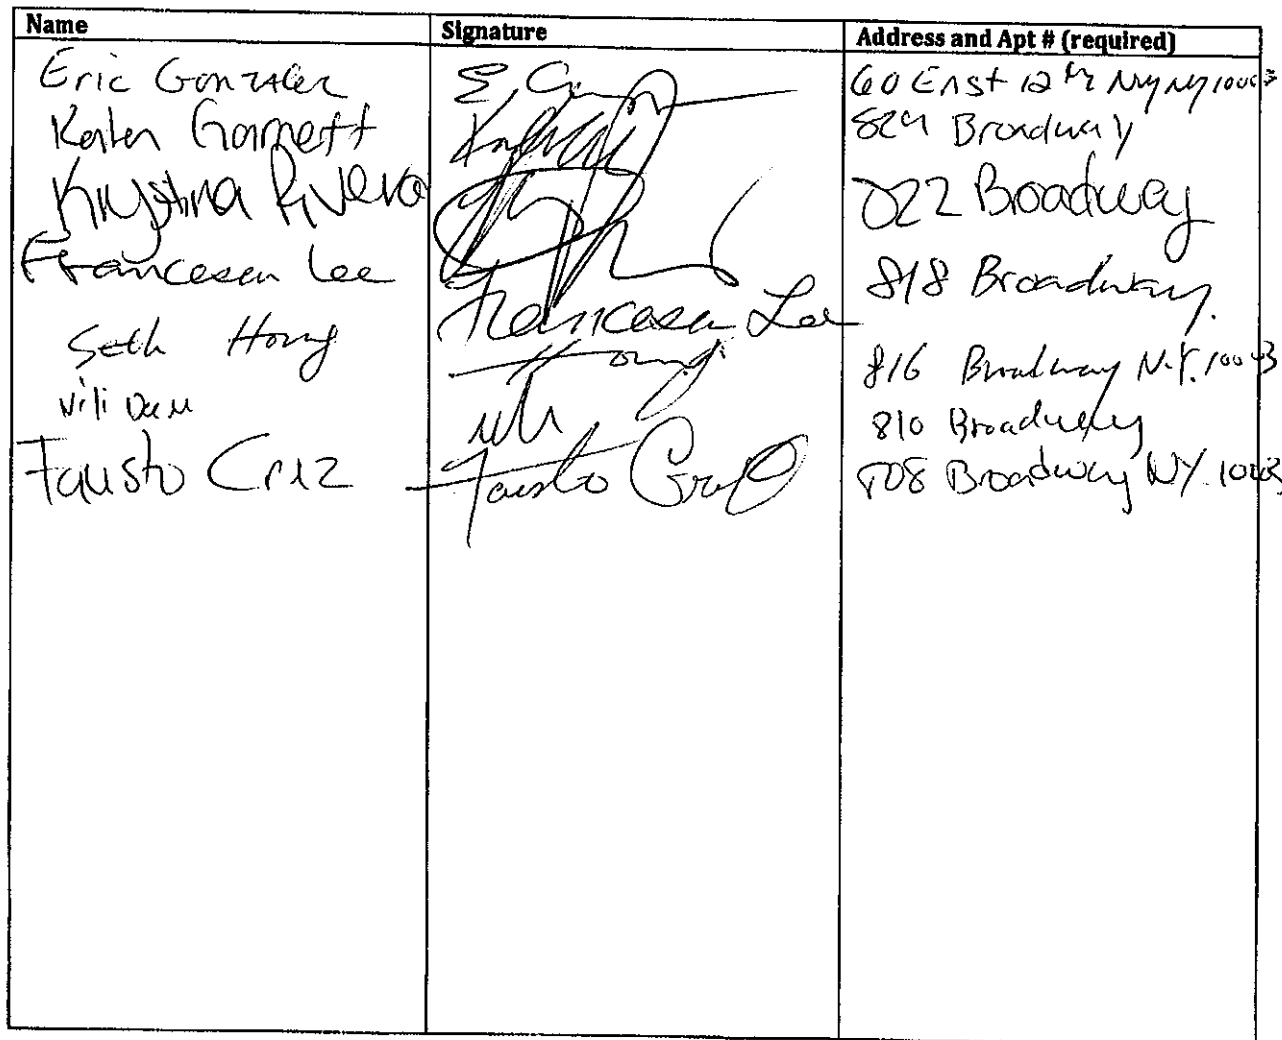 Name Signature Address and Apt # (required)
Eric Gonzalez E. G 60 East 12th NY NY 10003
Garnett 829 Broadway
Krystina Rivera 822 Broadway
Francesca Lee Francesca Lee 818 Broadway.
Seth Hong Hong 816 Broadway N.Y. 10003
810 Broadway
Fausto Cruz Fausto Cruz 808 Broadway NY. 10003